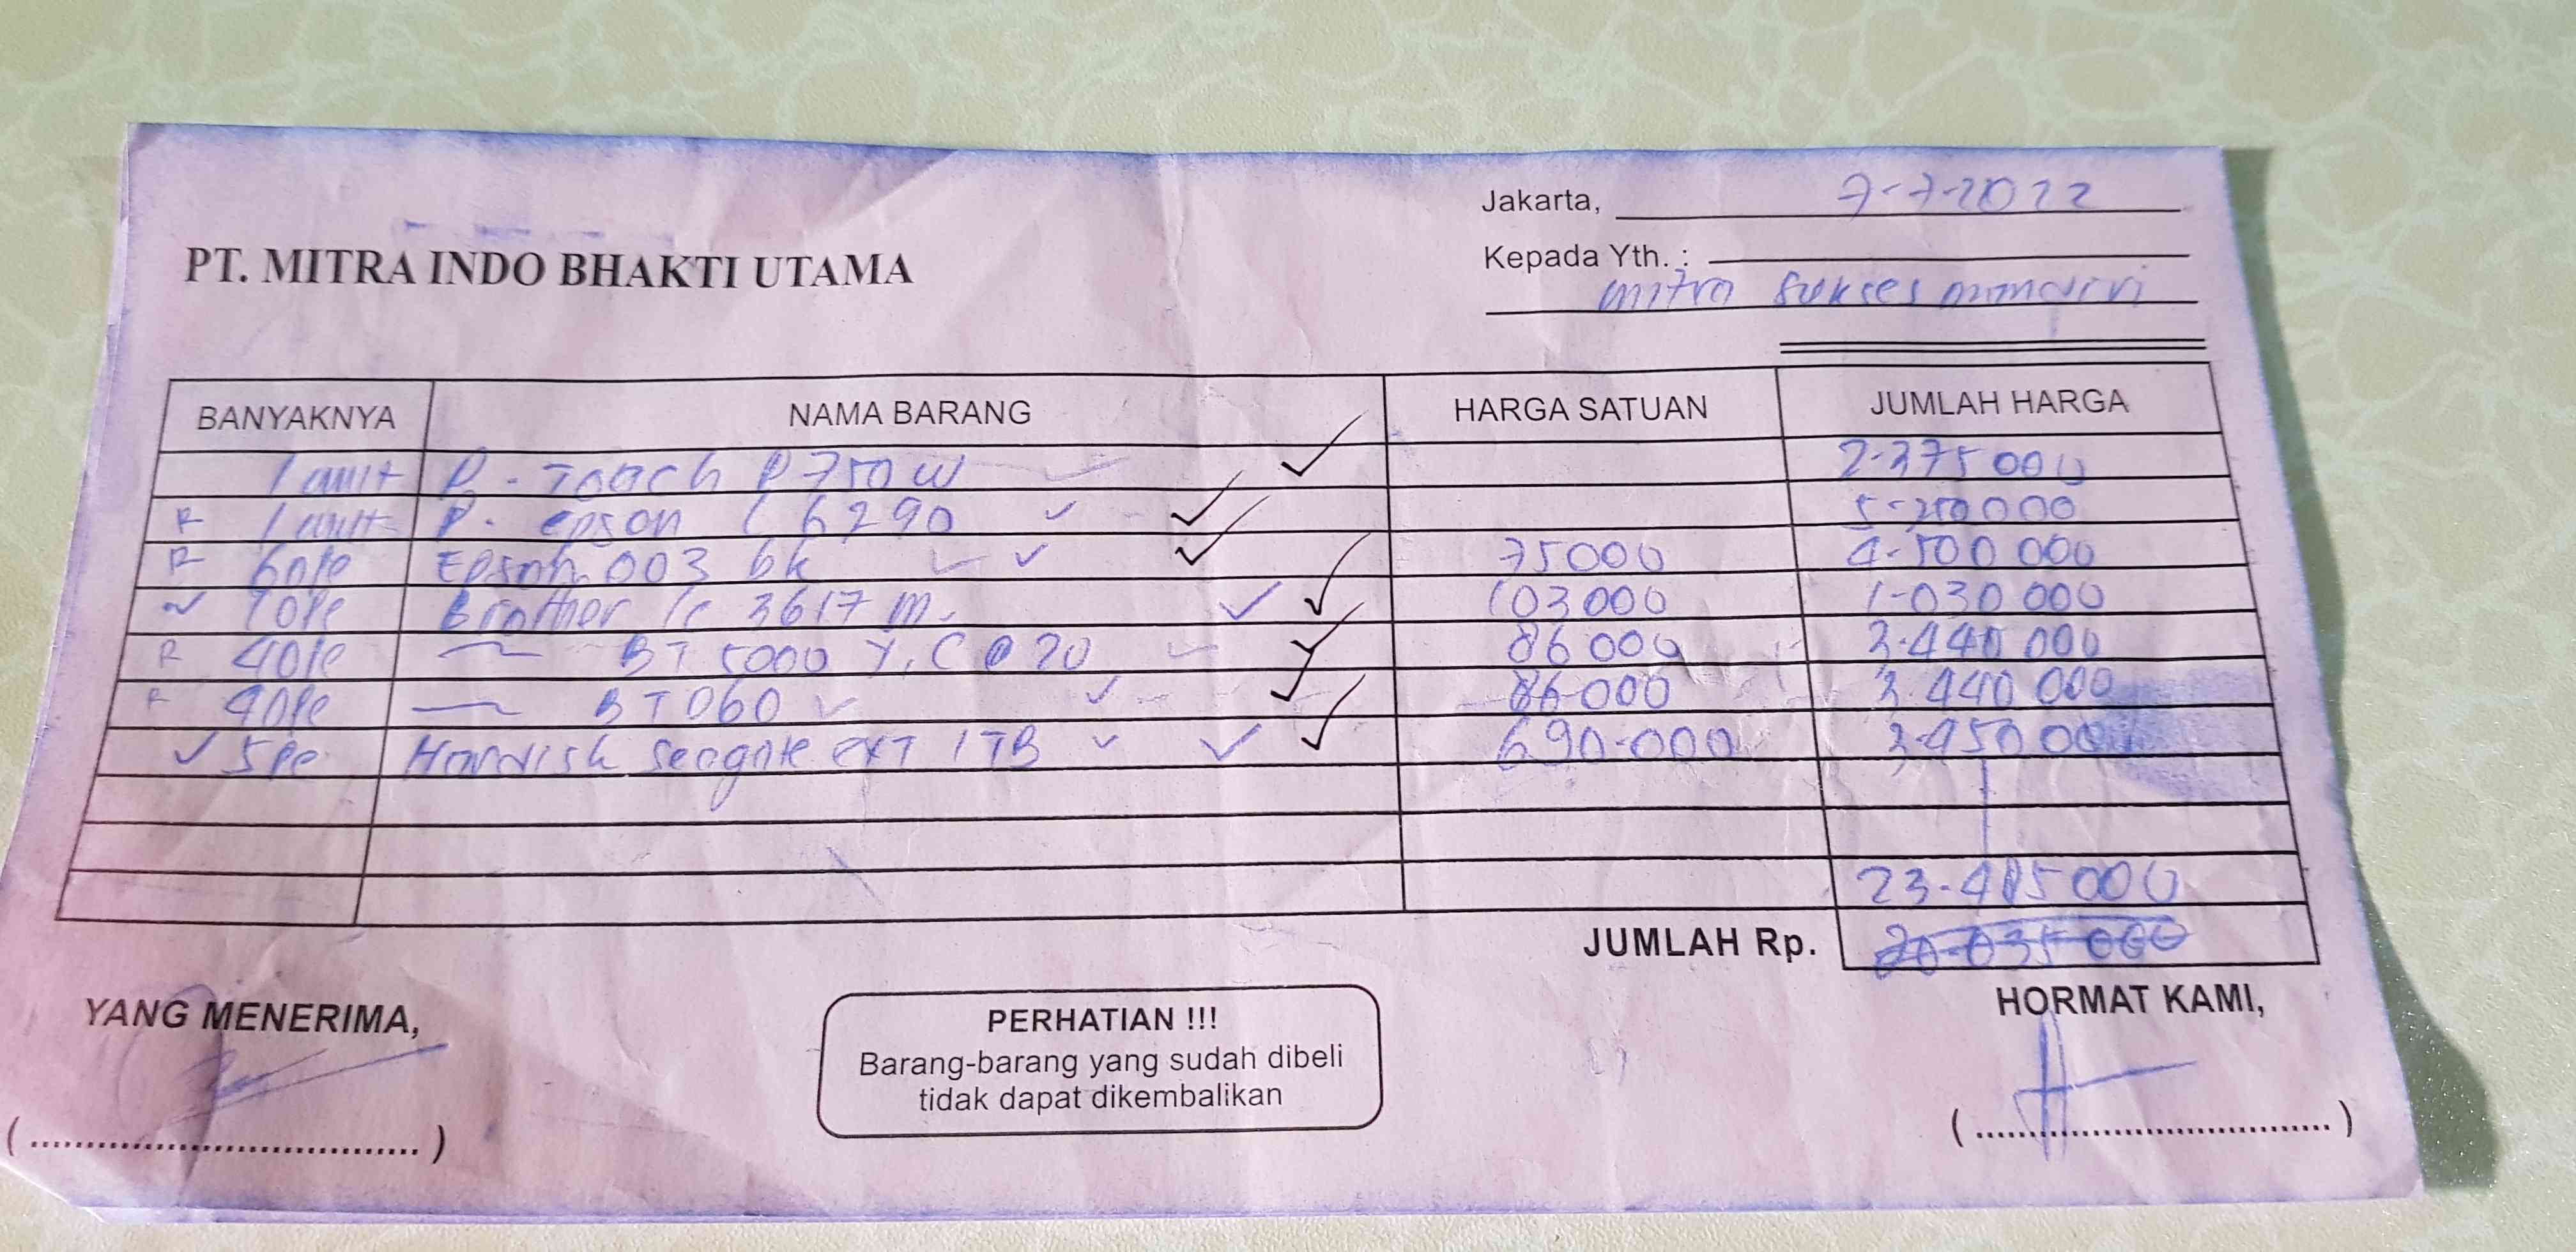 Jakarta, 7-7-2022
PT. MITRA INDO BHAKTI UTAMA
Kepada Yth. :
mitra sukses mandiri
BANYAKNYA NAMA BARANG HARGA SATUAN JUMLAH HARGA
1 unit P. Touch P750W 2.375 000
R 1 unit P. epson L 6290 5.250 000
R 60 pc Epson 003 bk 75000 4.500 000
10 pc Brother lc 3617 m. 103 000 1.030 000
R 40 pc BT 5000 Y, C @ 20 86 000 3.440 000
R 40 pc BT D60 86 000 3.440 000
5 pc Hardisk Seagate ext 1 TB 690.000 3.450 000
23.485 000
JUMLAH Rp. 20.035 000
YANG MENERIMA,
HORMAT KAMI,
PERHATIAN !!!
Barang-barang yang sudah dibeli
tidak dapat dikembalikan